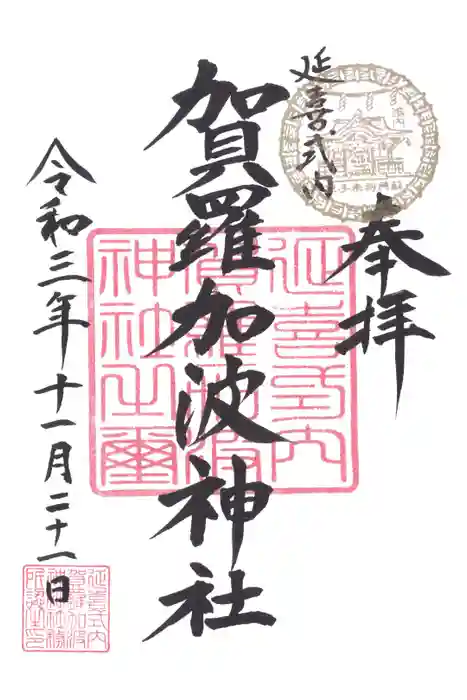 延喜式内
奉拝
賀羅加波神社
延喜式内
賀羅加波
神社之璽
令和三年十一月二十一日
延喜式内
賀羅加波